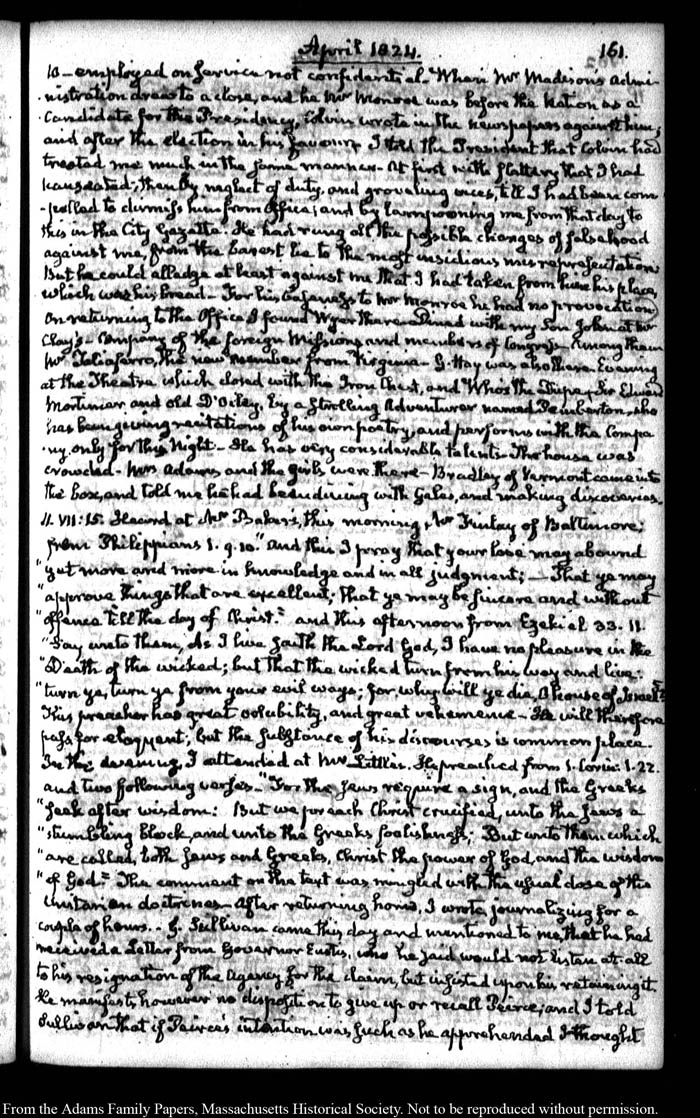 April 1824. 161.
10 - employed on service not confidential. When Mr Madison's admi-
-nistration drew to a close, and he Mr Monroe was before the Nation as a
Candidate for the Presidency, Colvin wrote in the newspapers against him;
and after the election in his favour. I told the President that Colvin had
treated me much in the same manner. At first with flattery that I had
nauseated; then by neglect of duty, and groveling vices, till I had been com-
-pelled to dismiss him from Office; and by lampooning me from that day to
this in the City Gazette. He had rung all the possible changes of falsehood
against me, from the basest lie to the most insidious misrepresentation
But he could alledge at least against me that I had taken from him his place,
which was his bread. For his baseness to Mr Monroe he had no provocation
On returning to the Office I found Wyer there. Dined with my Son John at Mr
Clay's - Company of the foreign Missions and members of Congress - Among them
Mr Taliaferro, the new member from Virginia - G. Hay was also there. Evening
at the Theatre which closed with the Iron Chest, and Who's the Dupe, Sir Edward
Mortimer and old Doiley, by a strolling Adventurer named Pemberton, who
has been giving recitations of his own poetry, and performs with the Compa-
-ny only for this Night - He has very considerable talents - The house was
crowded - Mrs Adams and the girls were there - Bradley of Vermont came into
the box, and told me he had been dining with Gales, and making discoveries.
11. VII:15. Heard at Mr Baker's, this morning, Mr Finlay of Baltimore;
from Philippians 1. 9. 10. "And this I pray that your love may abound
"yet more and more in knowledge and in all judgment; - That ye may
"approve things that are excellent; that ye may be sincere and without
"offence till the day of Christ." and this afternoon from Ezekiel 33. 11.
"Say unto them, As I live saith the Lord God, I have no pleasure in the
"Death of the wicked; but that the wicked turn from his way and live:
"turn ye, turn ye from your evil ways; for why will ye die, O house of Israel?"
This preacher has great volubility, and great vehemence - He will therefore
pass for eloquent; but the substance of his discourses is common place.
In the evening, I attended at Mr Little's. He preached from 1. Corin: 1. 22.
and two following verses. "For the Jews require a sign, and the Greeks
"seek after wisdom: But we preach Christ crucified, unto the Jews a
"stumbling block, and unto the Greeks foolishness; But unto them which
"are called, both Jews and Greeks, Christ the power of God, and the wisdom
"of God." The comment on the text was mingled with the usual dose of the
Unitarian doctrines. After returning home, I wrote journalizing for a
couple of hours. - G. Sullivan came this day and mentioned to me, that he had
received a Letter from Governor Eustis, who he said would not listen at all
to his resignation of the Agency for the claim, but insisted upon his retaining it.
He manifests however no disposition to give up or recall Peirce; and I told
Sullivan that if Peirce's intention was such as he apprehended I thought
From the Adams Family Papers, Massachusetts Historical Society. Not to be reproduced without permission.